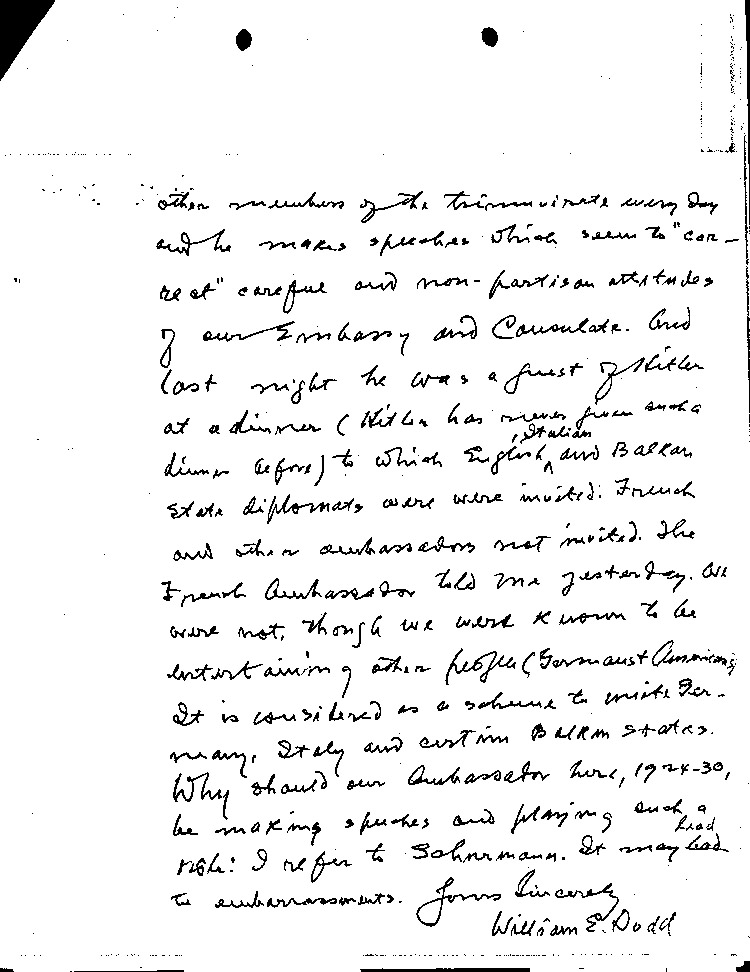 other members of the triumvirate every day
and he makes speeches which seem to "cor-
rect" careful and non-partisan attitudes
of our Embassy and Consulate. And
last night he was a guest of Hitler
at a dinner (Hitler has never given such a
dinner before) to which English, Italian and Balkan
State diplomats were were invited: French
and other ambassadors not invited. The
French Ambassador told me yesterday. We
were not, though we were known to be
entertaining other people (Germans & Americans)
It is considered as a scheme to unite Ger-
many, Italy and certain Balkan States.
Why should our Ambassador here, 1924-30,
be making speeches and playing such a
role: I refer to Schurmann. It may lead
lead
to embarrassments. Yours Sincerely
William E. Dodd